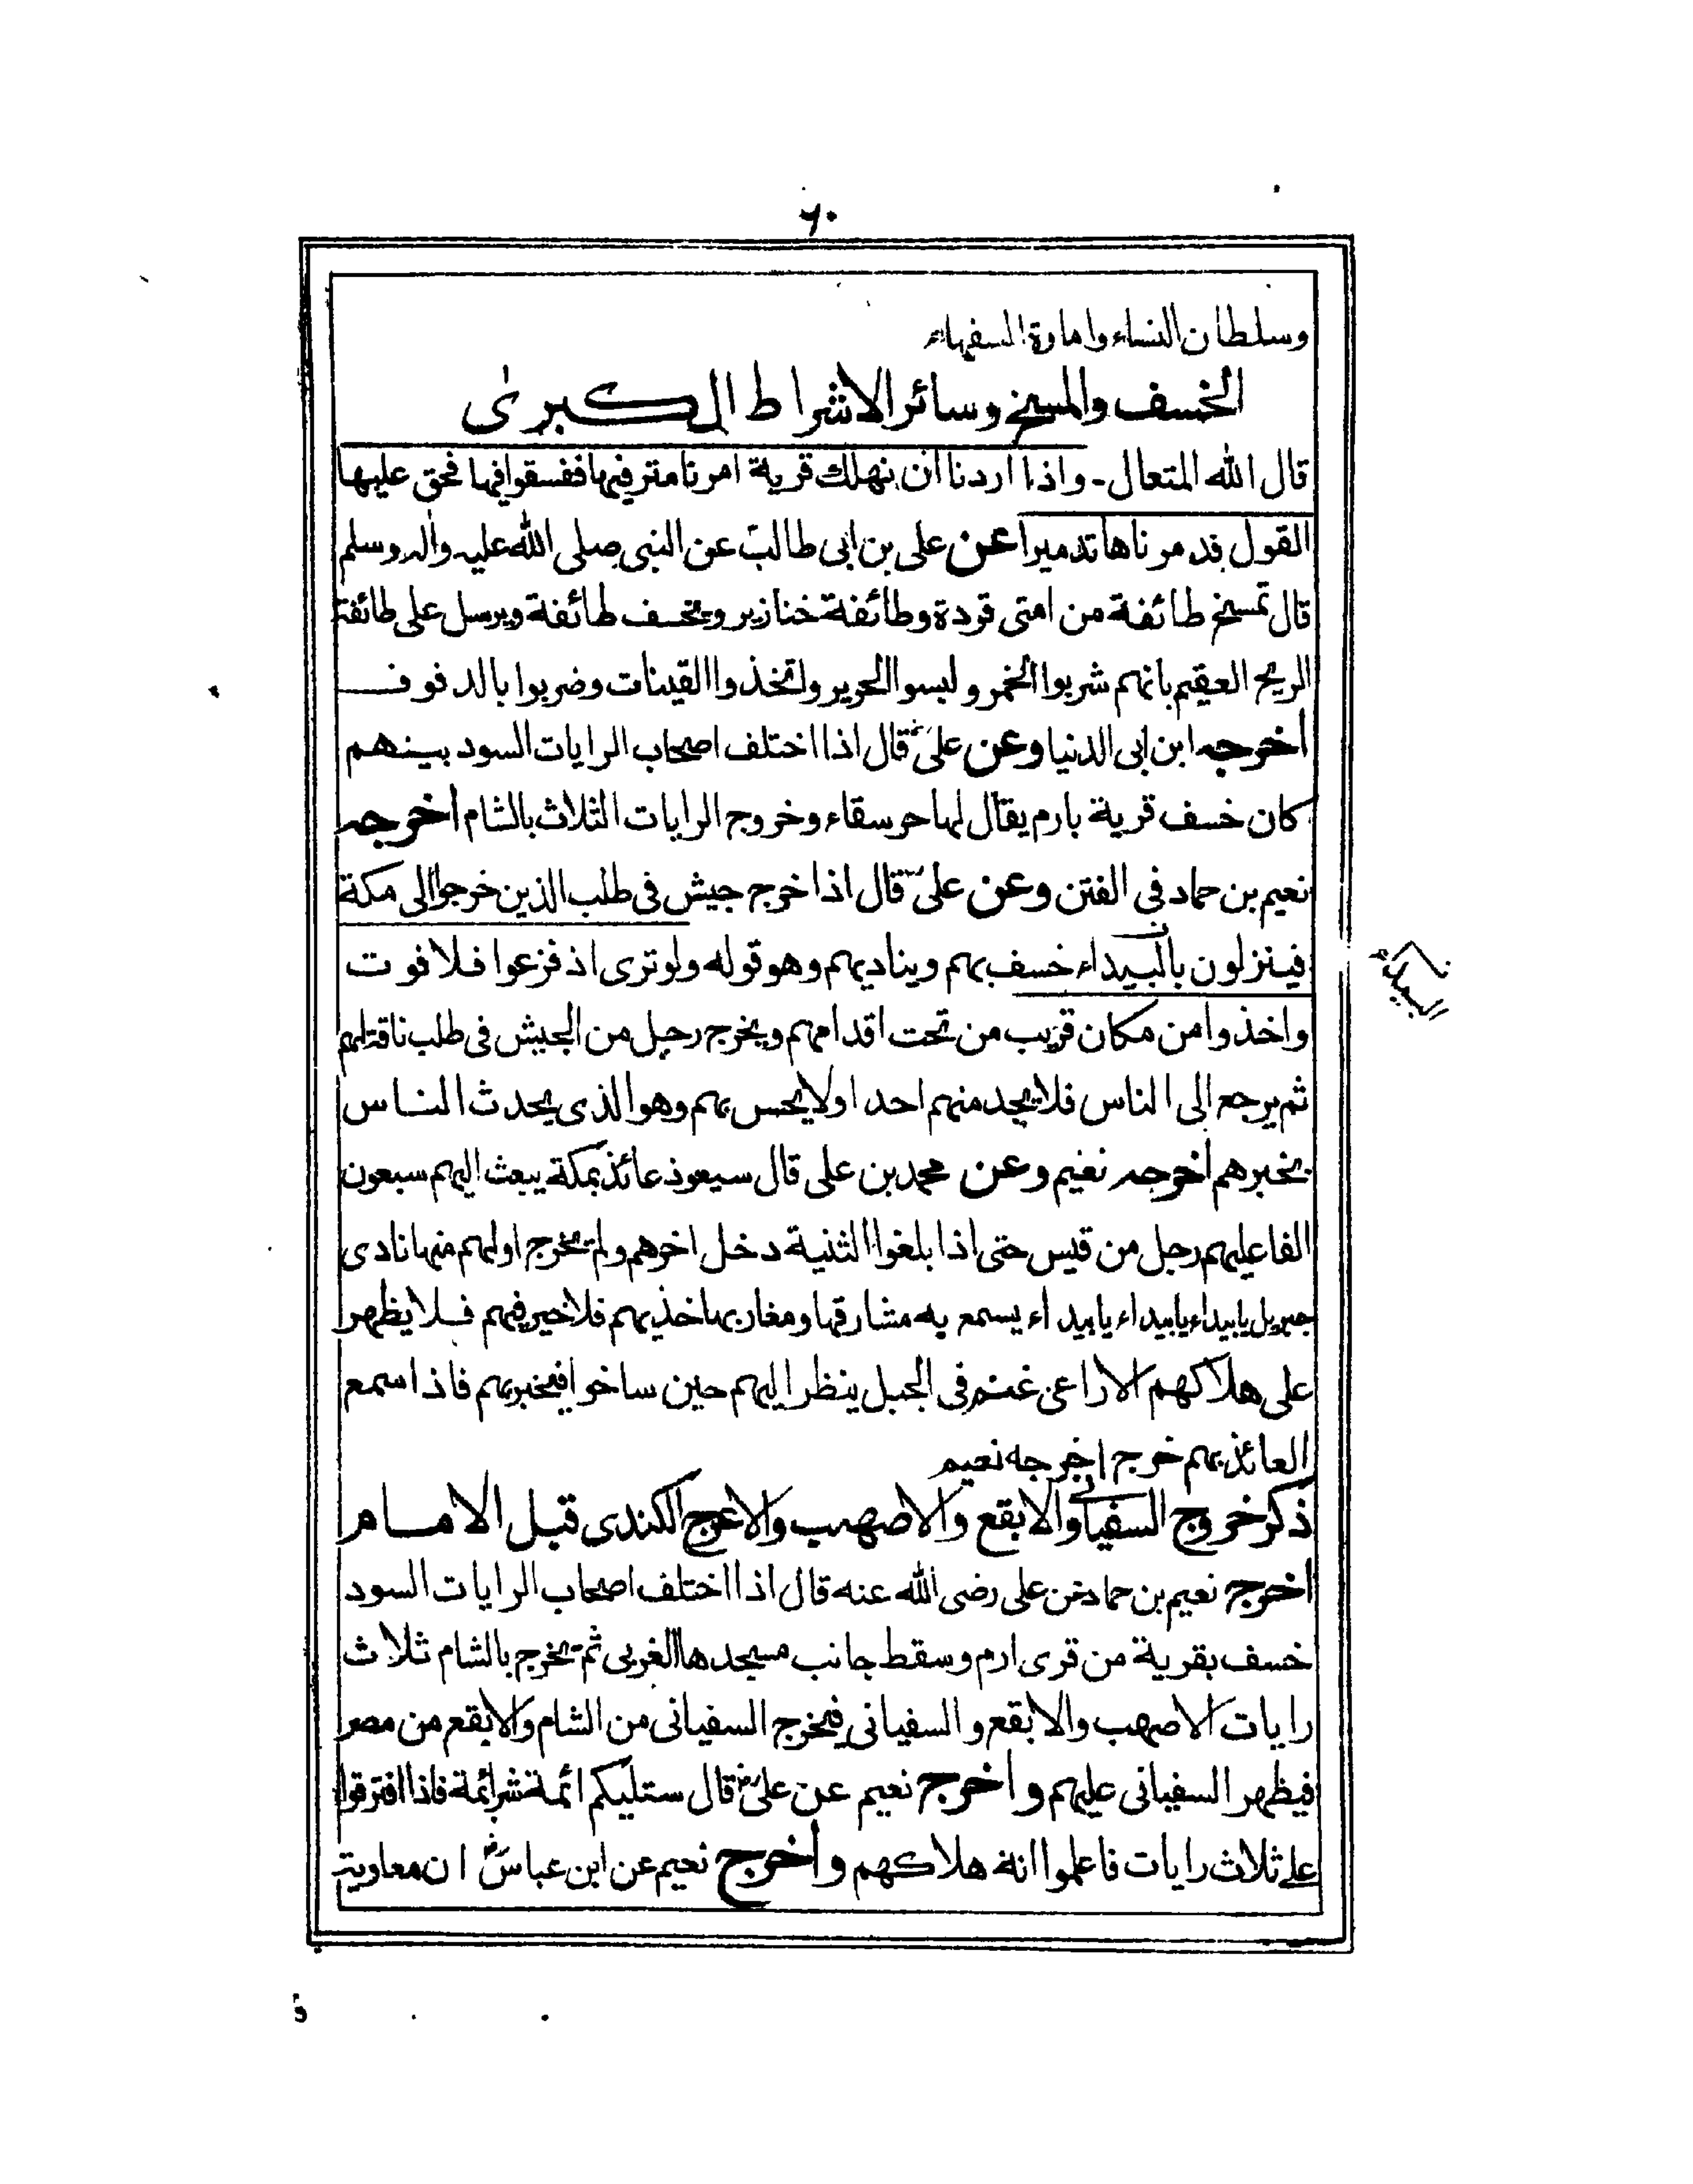 ٦٠
وسلطان النساء وامارة السفهاء
الخسف والمسخ وسائر الاشراط الكبرىٰ
قال الله المتعال - واذا اردنا ان نهلك قرية امرنا مترفيها ففسقوا فيها فحق عليها
القول فدمرناها تدميرا عن على بن ابى طالبؓ عن النبى صلى الله عليه واٰله وسلم
قال تمسخ طائفة من امتى قردة وطائفة خنازير ويخسف طائفة ويرسل على طائفة
الريح العقيم بانهم شربوا الخمر ولبسوا الحرير واتخذوا القينات وضربوا بالدفوف
اخرجه ابن ابى الدنيا وعن علىؓ قال اذا اختلف اصحاب الرايات السود بينهم
كان خسف قرية بارم يقال لها حرسقاء وخروج الرايات الثلاث بالشام اخرجه
نعيم بن حماد فى الفتن وعن علىؓ قال اذا خرج جيش فى طلب الذين خرجوا الى مكة
فينزلون بالبيداء خسف بهم ويناديهم وهو قوله ولو ترى اذ فزعوا فلا فوت
البيداء
واخذوا من مكان قريب من تحت اقدامهم ويخرج رجل من الجيش فى طلب ناقة لهم
ثم يرجع الى الناس فلا يجد منهم احدا ولا يحس بهم وهو الذى يحدث الناس
بخبرهم اخرجه نعيم وعن محمد بن على قال سيعوذ عائذ بمكة يبعث اليهم سبعون
الفا عليهم رجل من قيس حتى اذا بلغوا الثنية دخل اخرهم ولم يخرج اولهم منها نادى
جبريل يا بيداء يا بيداء يا بيداء يسمع به مشارقها ومغاربها خذيهم فلا خير فيهم فلا يظهر
على هلاكهم الا راعى غنم فى الجبل ينظر اليهم حين ساخوا فيخبر بهم فاذا سمع
العائذ بهم خرج اخرجه نعيم
ذكر خروج السفيانى والابقع والاصهب والاعرج الكندى قبل الامام
اخرج نعيم بن حماد عن على رضى الله عنه قال اذا اختلف اصحاب الرايات السود
خسف بقرية من قرى ارم وسقط جانب مسجدها الغربى ثم يخرج بالشام ثلاث
رايات الاصهب والابقع والسفيانى فيخرج السفيانى من الشام والابقع من مصر
فيظهر السفيانى عليهم واخرج نعيم عن علىؓ قال ستليكم ائمة شر ائمة فاذا افترقوا
على ثلاث رايات فاعلموا انه هلاكهم واخرج نعيم عن ابن عباسؓ ان معاوية